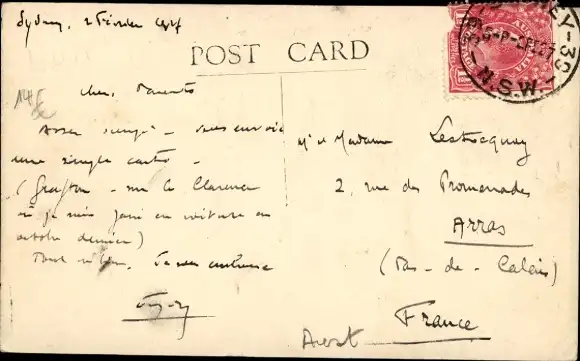 Sydney, 2 Février 1927
POST CARD
SYDNEY-38
2 FE 27
N.S.W.
Chers Parents
une simple carte -
(Grafton - sur la Clarence
où je suis passé en voiture en
octobre dernier)
Tout va bien.
Mr et Madame Lestocquoy
2, rue des Promenades
Arras
(Pas-de-Calais)
France
Aust